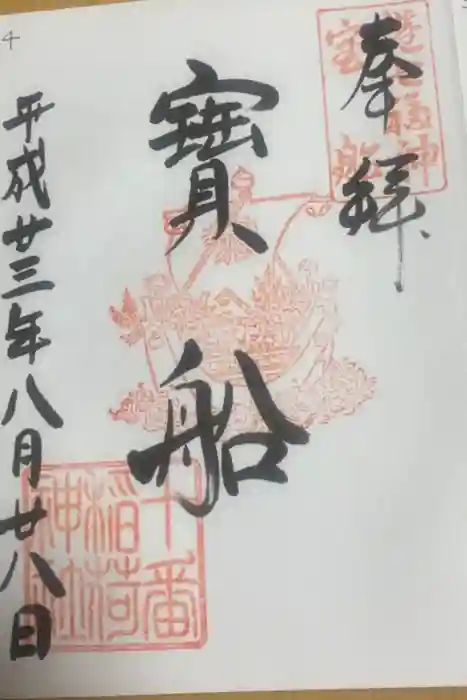 奉拝
港七福神
宝船
寳船
平成廿三年八月廿八日
十番
稲荷
神社
4